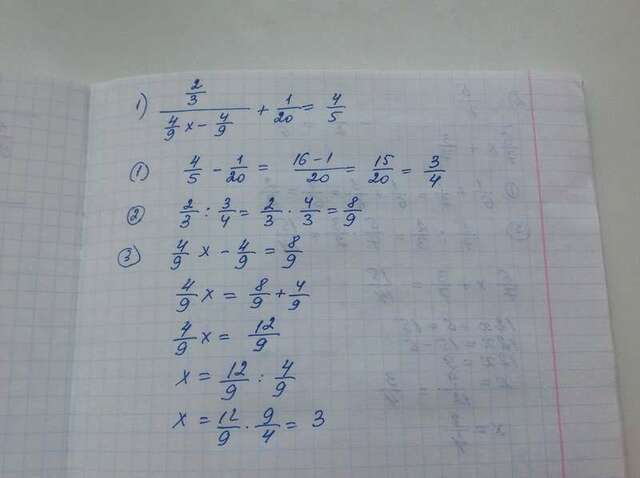 1) \frac{\frac{2}{3}}{\frac{4}{9}x - \frac{4}{9}} + \frac{1}{20} = \frac{4}{5}
① \frac{4}{5} - \frac{1}{20} = \frac{16-1}{20} = \frac{15}{20} = \frac{3}{4}
② \frac{2}{3} : \frac{3}{4} = \frac{2}{3} \cdot \frac{4}{3} = \frac{8}{9}
③ \frac{4}{9} x - \frac{4}{9} = \frac{8}{9}
\frac{4}{9} x = \frac{8}{9} + \frac{4}{9}
\frac{4}{9} x = \frac{12}{9}
x = \frac{12}{9} : \frac{4}{9}
x = \frac{12}{9} \cdot \frac{9}{4} = 3